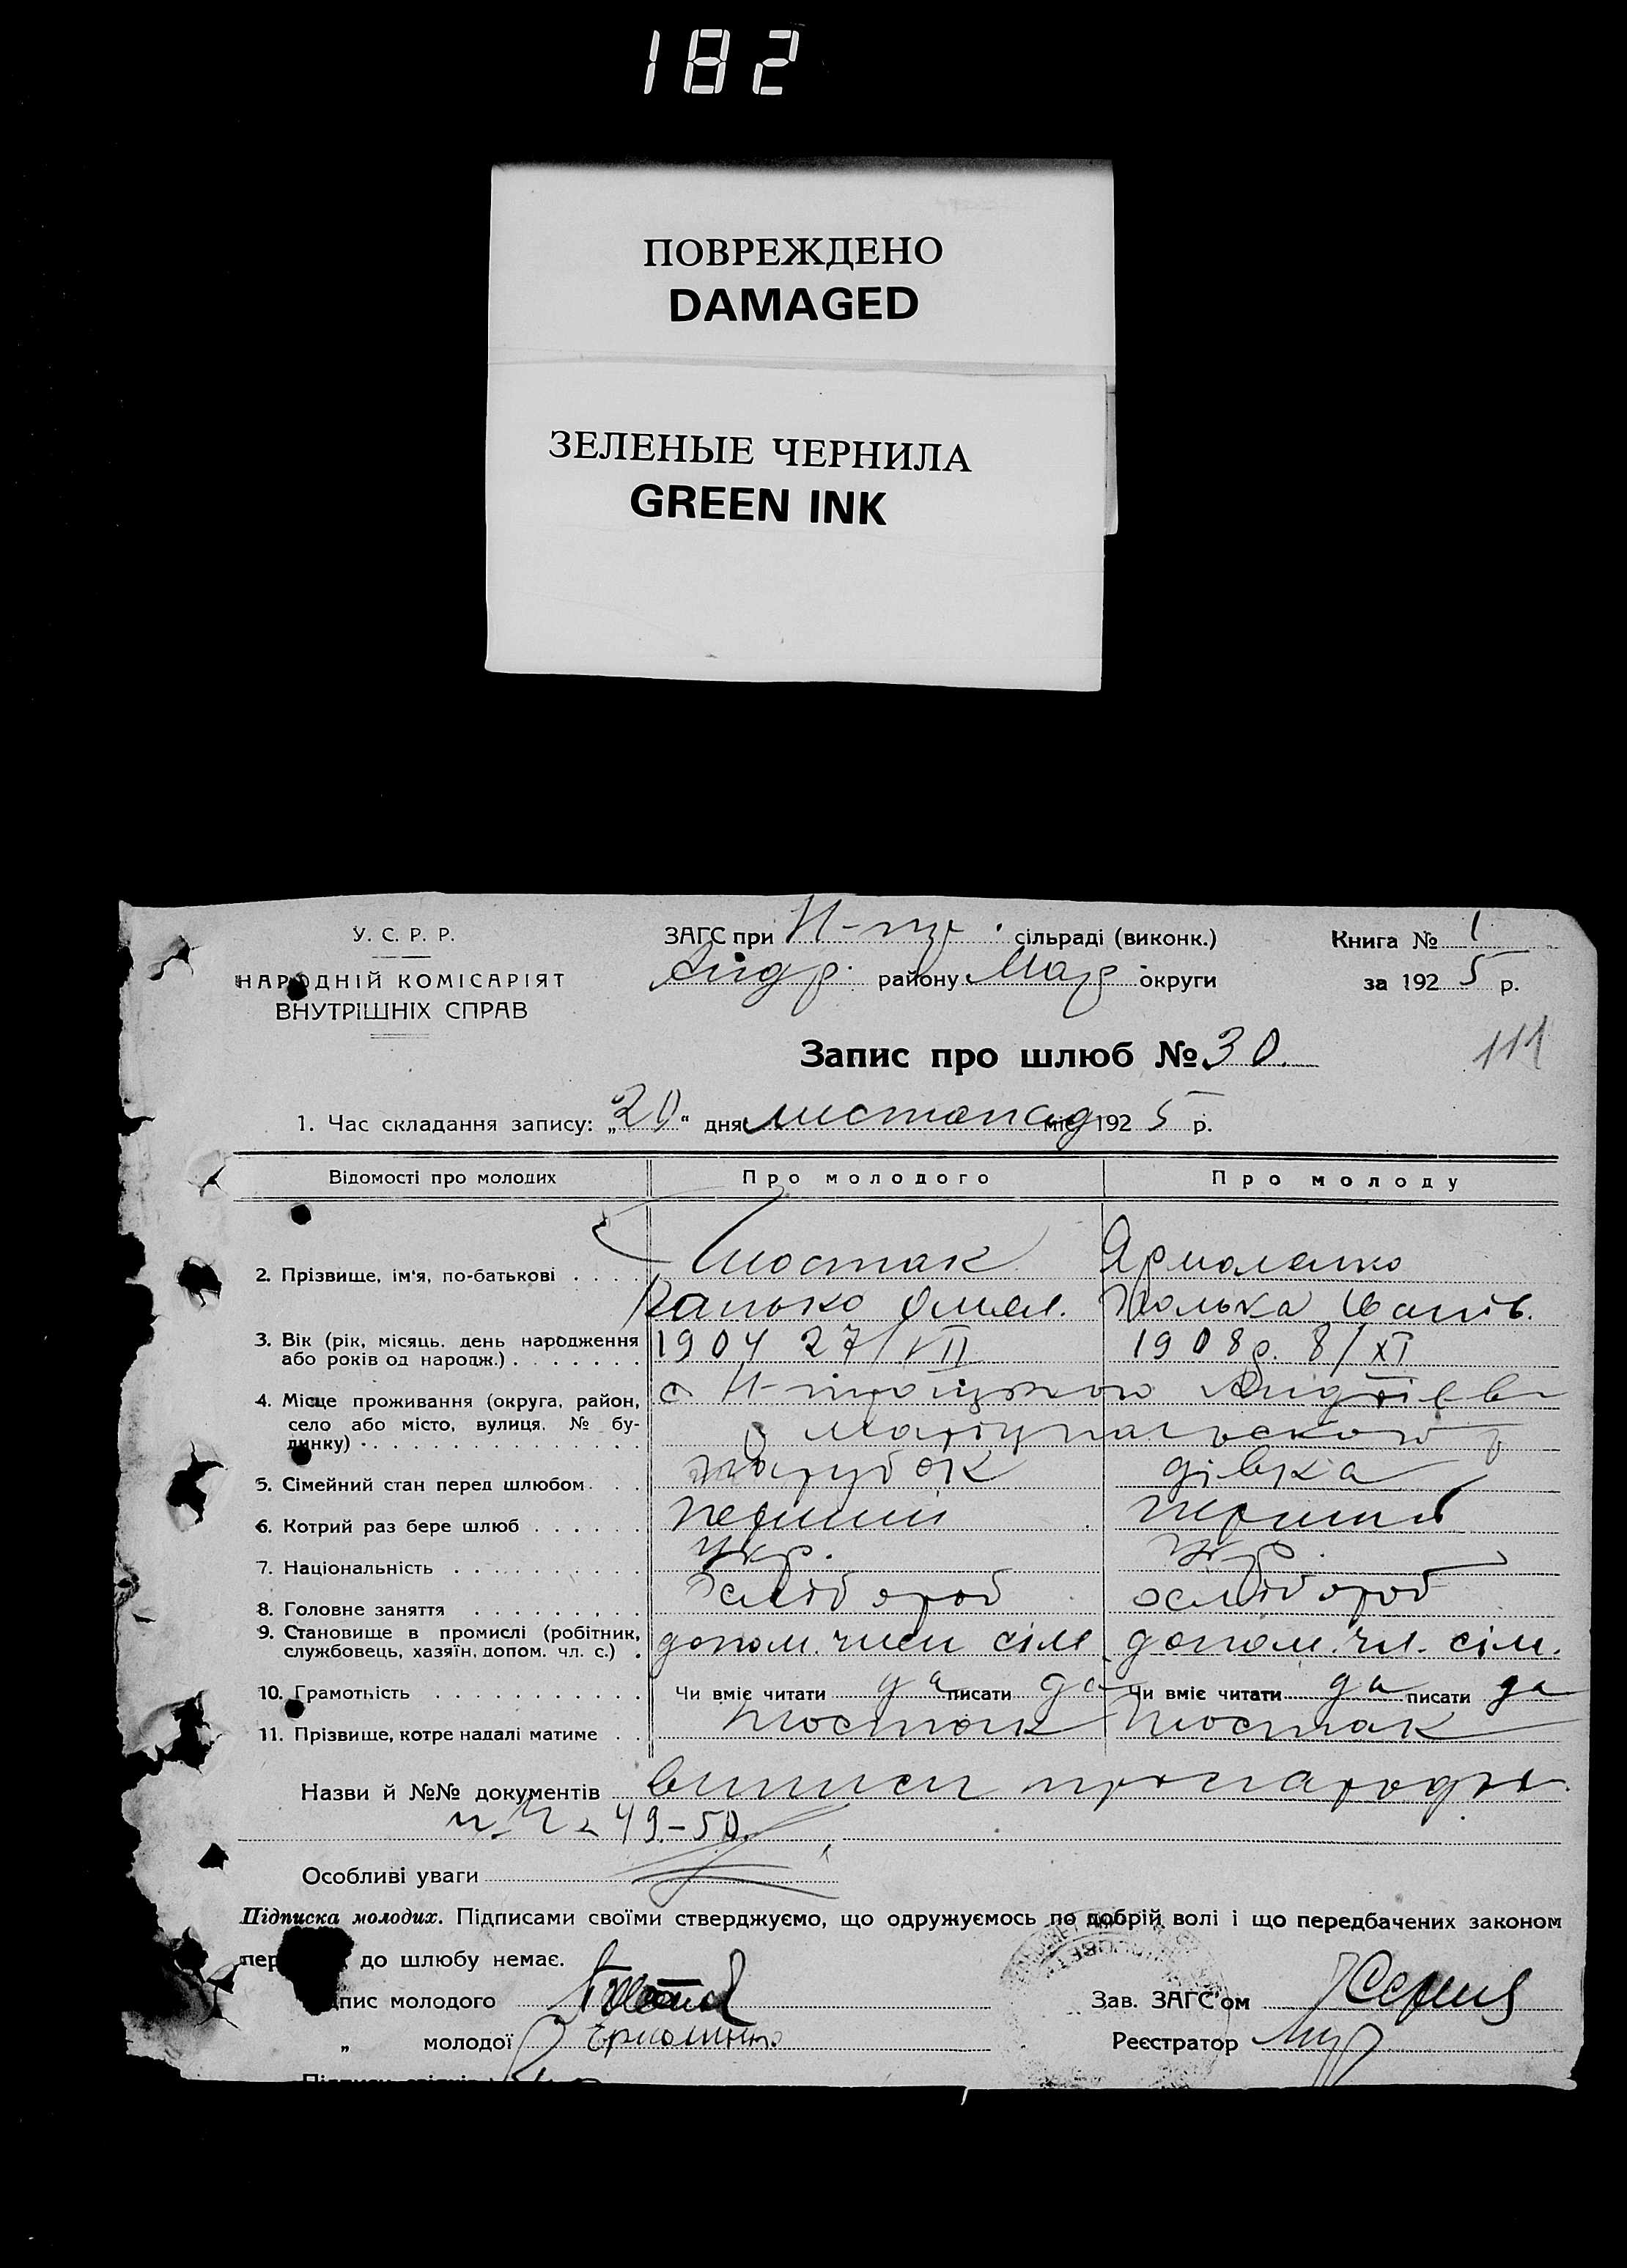 182
ПОВРЕЖДЕНО
DAMAGED
ЗЕЛЕНЫЕ ЧЕРНИЛА
GREEN INK
У. С. Р. Р.
НАРОДНІЙ КОМІСАРІЯТ
ВНУТРІШНІХ СПРАВ
ЗАГС при сільраді (виконк.)
Андр. району Мар. округи
Книга № 1
за 1925 р.
Запис про шлюб № 30.
111
1. Час складання запису: „20" дня листопад міс. 1925 р.
Відомості про молодих Про молодого Про молоду
2. Прізвище, ім'я, по-батькові . . . . Шостак Ярмоленко
Омел. Полька Іванів.
3. Вік (рік, місяць. день народження 1904 27/VII 1908р. 8/XI
або років од народж.) . . . . . . .
4. Місце проживання (округа, район, с. Н-троїцького Андріїв
село або місто, вулиця. № бу- Маріупальского
динку) . . . . . . . . . . . . . . . .
5. Сімейний стан перед шлюбом. . . парубок дівка
6. Котрий раз бере шлюб . . . . . . перший перший
7. Національність . . . . . . . . . . укр. укр.
8. Головне заняття . . . . . . . . . хлібороб хлібороб
9. Становище в промислі (робітник, допом. член сім допом. чл. сім.
службовець, хазяїн, допом. чл. с.) .
10. Грамотність . . . . . . . . . . . Чи вміє читати да писати да Чи вміє читати да писати да
11. Прізвище, котре надалі матиме . . Шостак Шостак
Назви й №№ документів виписи про народж.
49-50
Особливі уваги
Підписка молодих. Підписами своїми стверджуємо, що одружуємось по добрій волі і що передбачених законом
пер до шлюбу немає.
пис молодого Зав. ЗАГС'ом
„ молодої Реєстратор